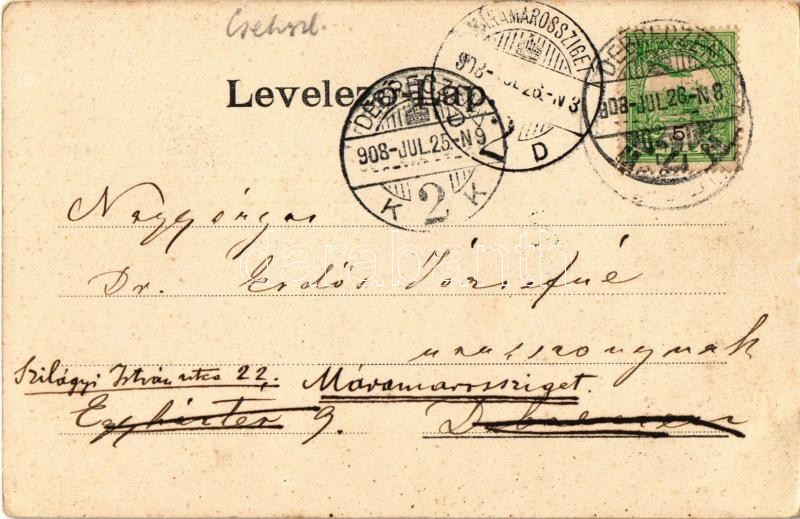 Csehszl.
Levelező-Lap.
MÁRAMAROSSZIGET
908-JUL.26.-N 3
D
DEBRECZEN
908-JUL.25.-N 9
K 2 K
DEBRECZEN
908-JUL.26.-N 8
5
darabanth
Nagyságos
Dr. Erdős Józsefné
urasszonynak
Szilágyi István utca 22. Máramarossziget.
Egyháztér 9. Debreczen